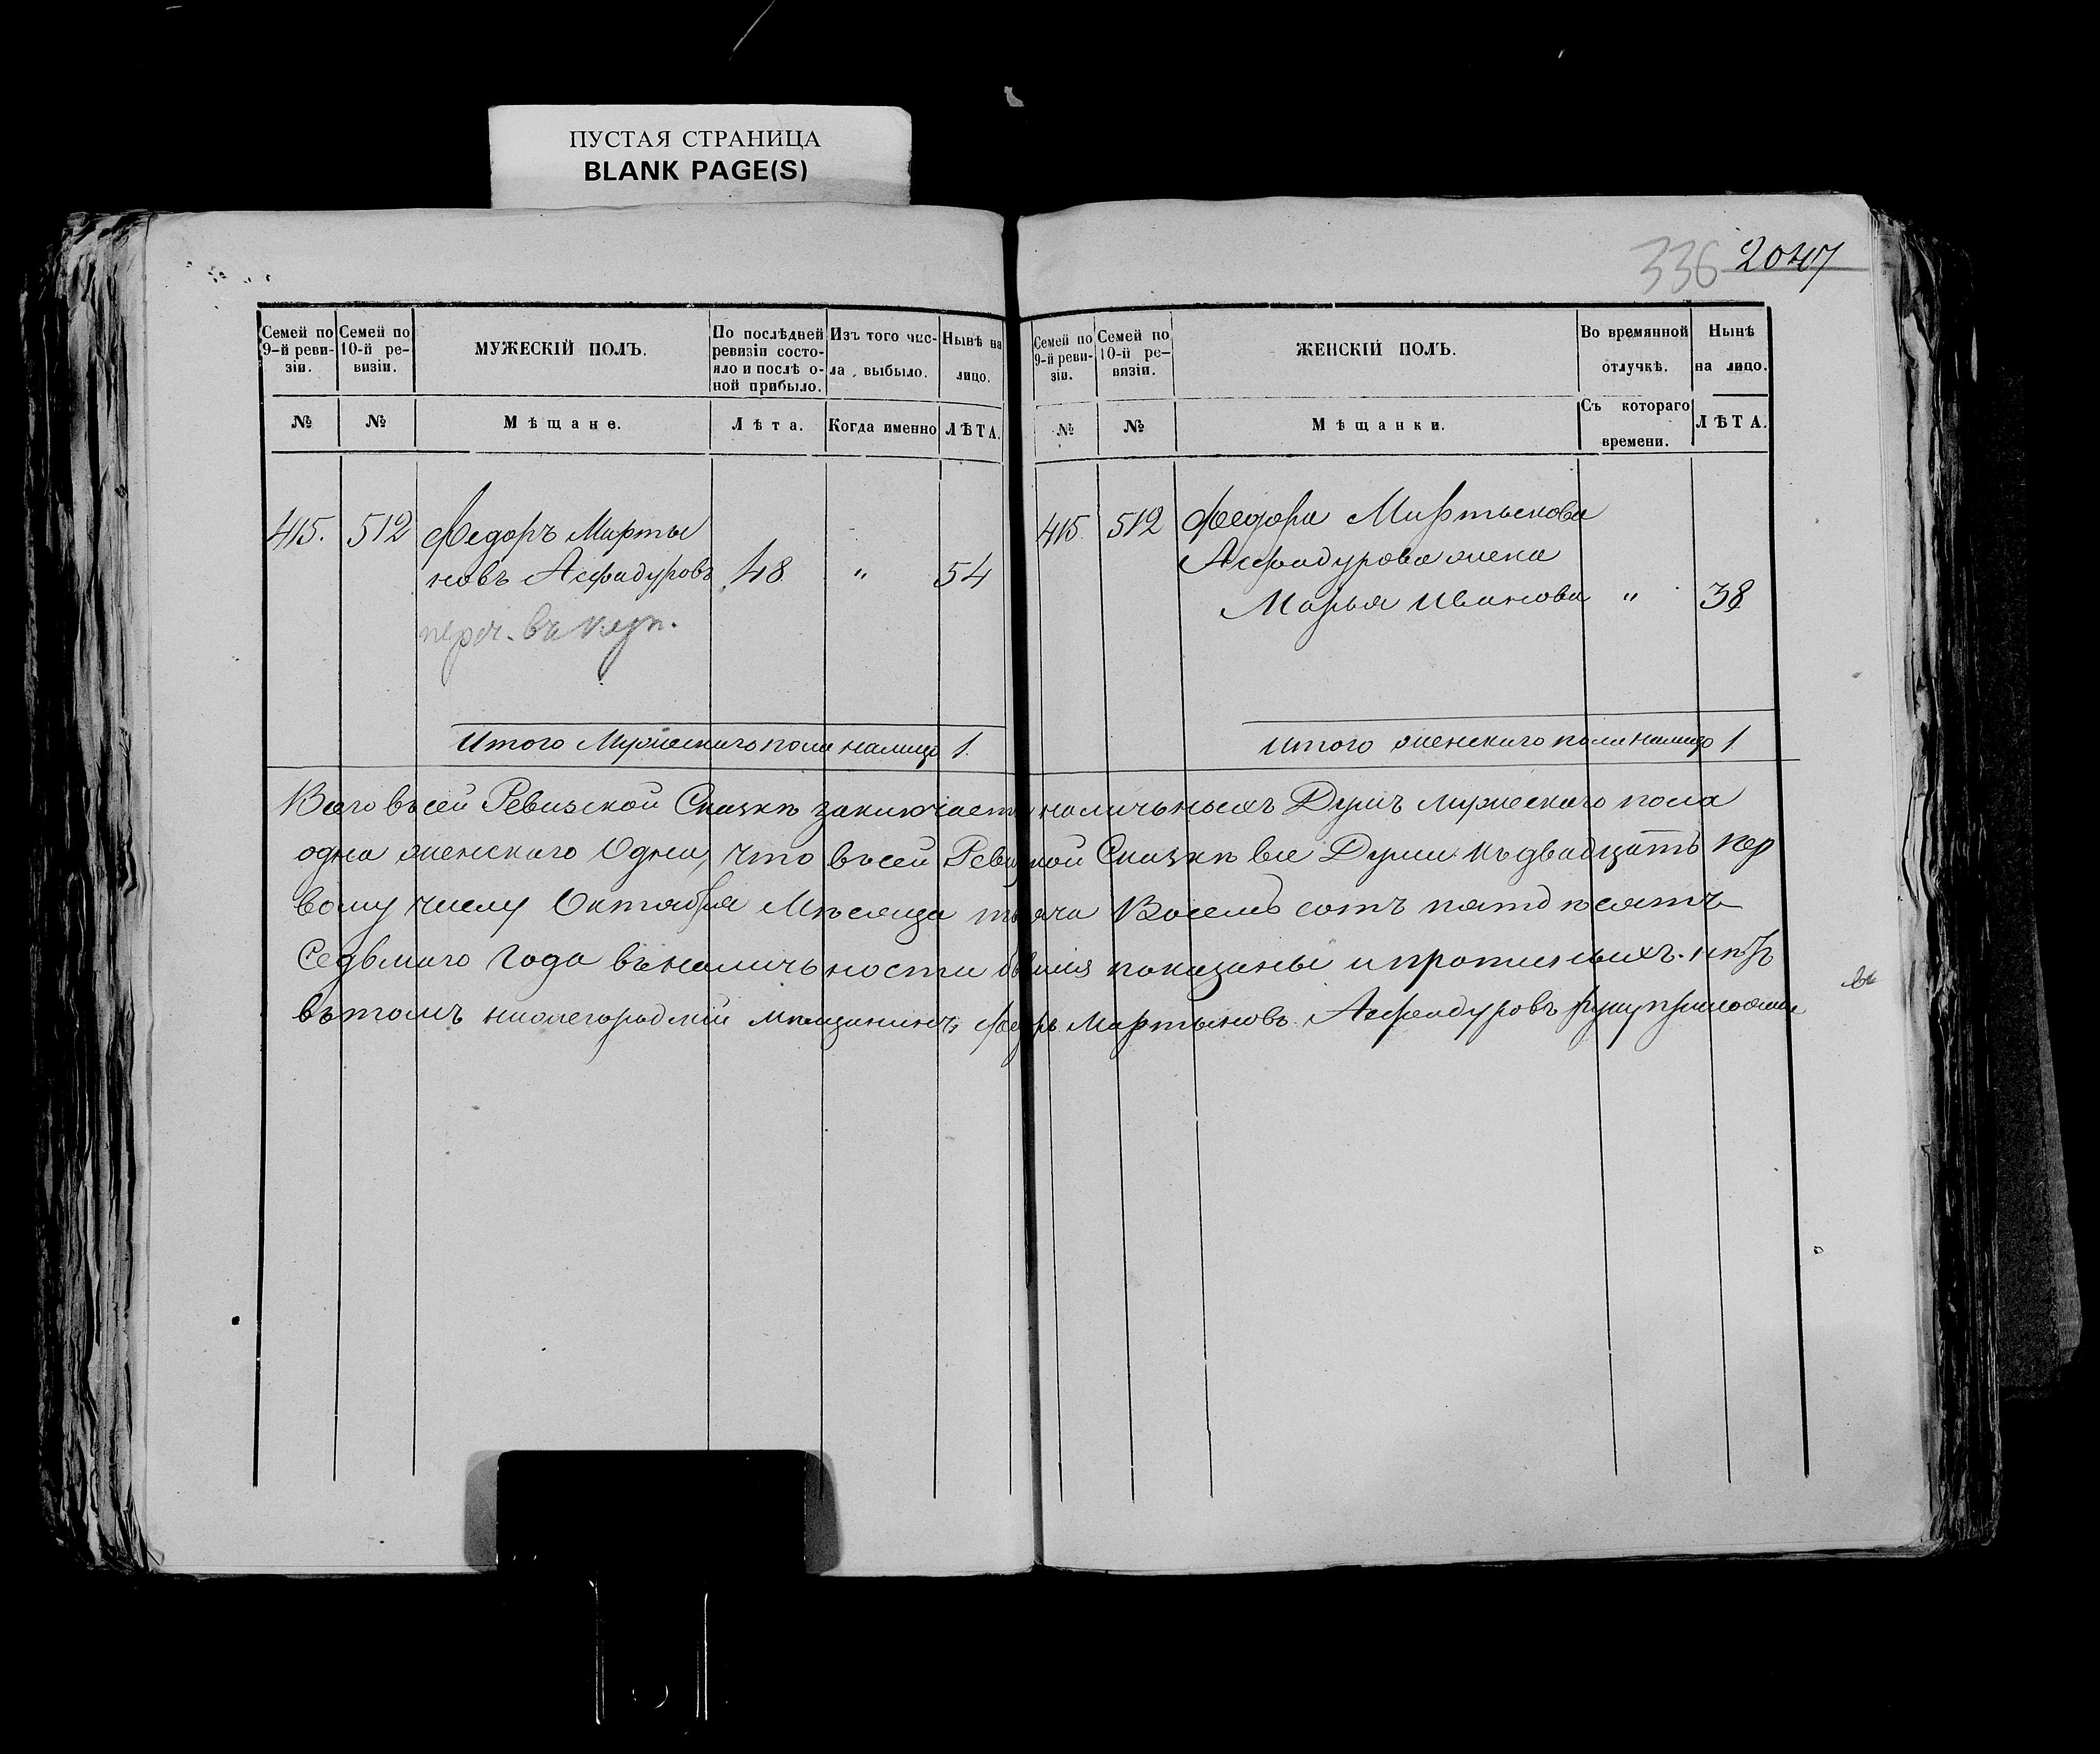 ПУСТАЯ СТРАНИЦА
BLANK PAGE(S)
336 2047
Семей по 9-й реви-зіи.
Семей по 10-й ре-визіи.
МУЖЕСКІЙ ПОЛЪ.
По послѣдней ревизіи состо-яло и послѣ о-ной прибыло.
Изъ того чис-ла выбыло.
Нынѣ на лицо.
№ № Мѣщане. Лѣта. Когда именно ЛѢТА.
415. 512 Федоръ Марты
новъ Асфадуровъ 48 " 54
переч. въ куп.
Итого Мужескаго пола налицо 1.
Семей по 9-й реви-зіи.
Семей по 10-й ре-визіи.
ЖЕНСКІЙ ПОЛЪ.
Во времянной отлучкѣ.
Нынѣ на лицо.
№ № Мѣщанки. Съ котораго времени. ЛѢТА.
415. 512 Федора Мартынова
Асфадурова жена
Марья Иванова " 38
Итого женскаго пола налицо 1
Всего въ сей Ревизской Сказкѣ заключается наличьныхъ Душъ мужескаго пола
одна женскаго Одна, что въ сей Ревизской Сказкѣ все Души къ двадцать пер
вому числу Октября Мѣсяца тысяча Восемь сотъ пятдѣсятъ
Седьмаго Года въ наличьности бывшія показаны и прописныхъ. нѣтъ
въ томъ нижегородскій мѣщанинъ Федоръ Мартыновъ Асфадуровъ руку приложилъ